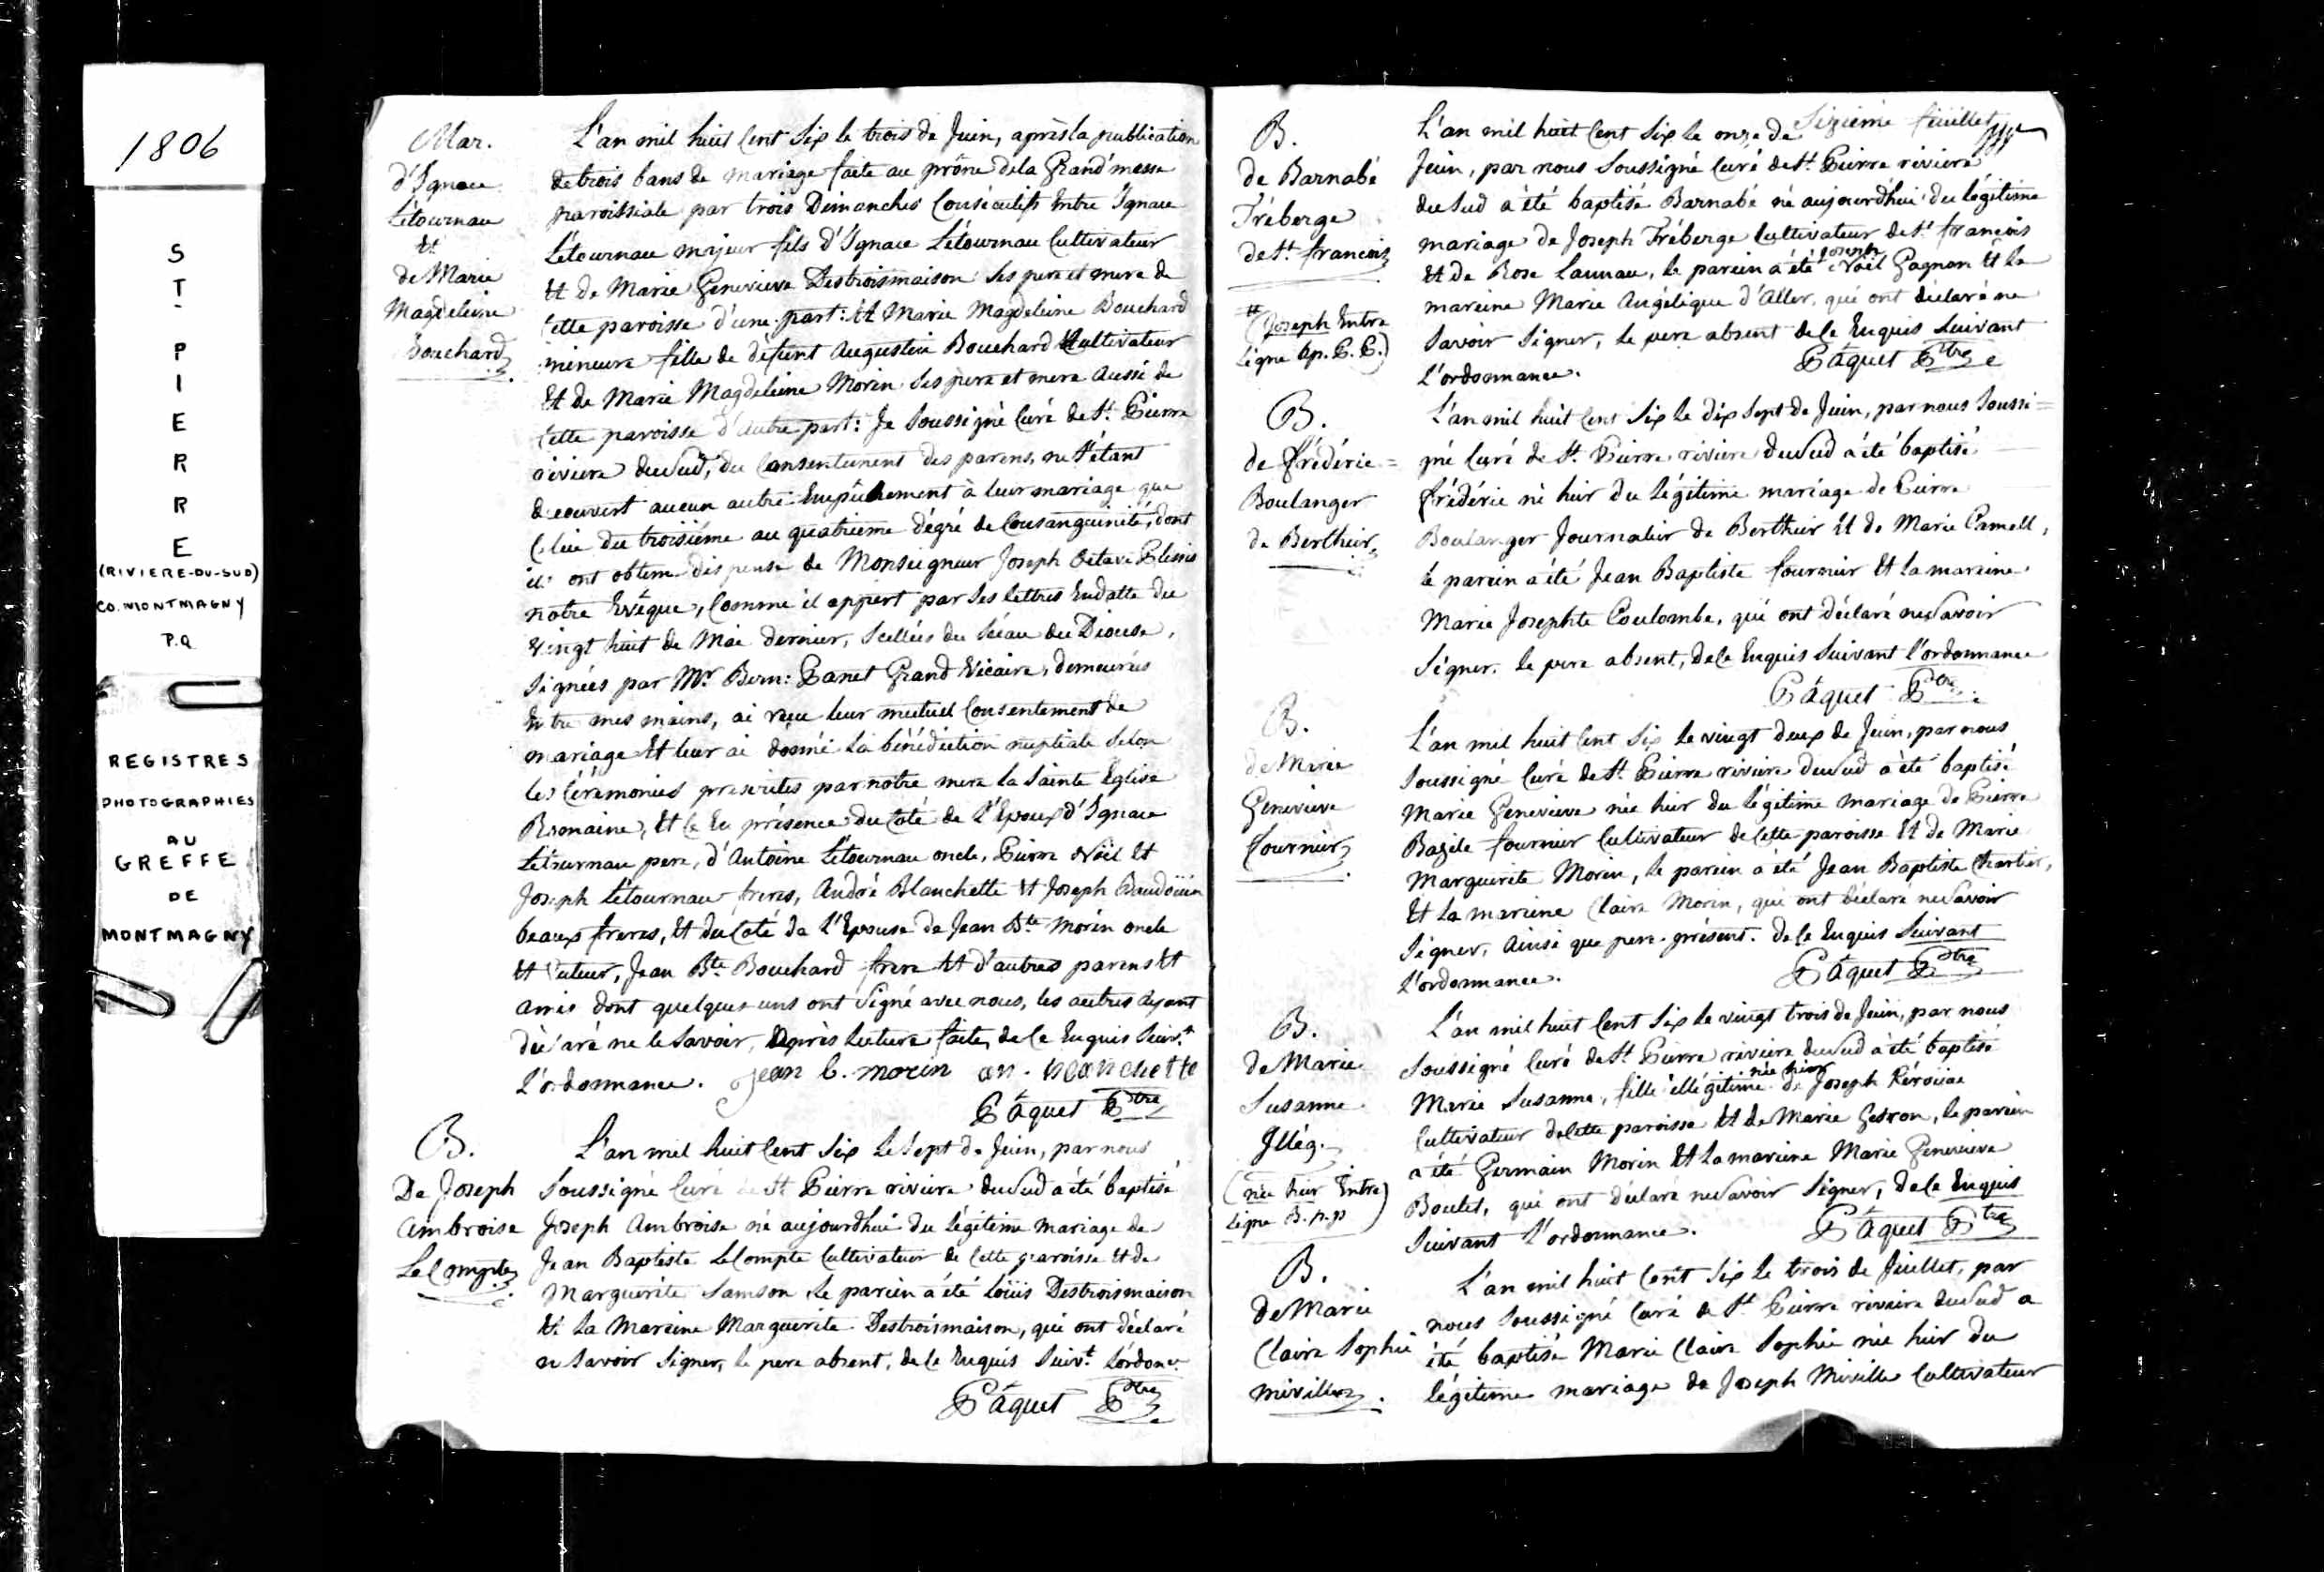 1806
S
T
-
P
I
E
R
R
E
(RIVIERE-DU-SUD)
CO. MONTMAGNY
P.Q.
REGISTRES
PHOTOGRAPHIES
AU
GREFFE
DE
MONTMAGNY
Mar.
d'Ignace
Létournau
et
de Marie
Magdeleine
Bouchard
L'an mil huit Cent Six le trois de Juin, après la publication
de trois bans de mariage faite au prône de la Grand'messe
paroissiale par trois Dimanches Consécutifs Entre Ignace
Létournau majeur fils d'Ignace Létournau Cultivateur
Et de Marie Genevieve Destroismaison Ses pere et mere de
Cette paroisse d'une part: Et Marie Magdeleine Bouchard
mineure fille de défunt Augustin Bouchard Cultivateur
Et de Marie Magdeleine Morin Ses pere et mere aussi de
Cette paroisse d'autre part: Je Soussigné Curé de St. Pierre
riviere du Sud, du Consentement des parens, ne S'étant
découvert aucun autre Empêchement à leur mariage que
Celui du troisiéme au quatrieme dégré de Consanguinité, dont
ils ont obtenu dispense de Monseigneur Joseph Octave Plessis
notre Evêque, Comme il appert par Ses lettres Endatte du
vingt huit de Mai dernier, Scellées du Sceau du Diocese,
Signées par Mr. Bern: Panet Grand Vicaire, demeurées
Entre mes mains, ai reçu leur mutuel Consentement de
mariage Et leur ai donné la bénédiction nuptiale Selon
les Cérémonies prescrites par notre mere la Sainte Eglise
Romaine, Et Ce En présence du Coté de l'Epoux d'Ignace
Létournau pere, d'Antoine Létournau oncle, Pierre Noël Et
Joseph Létournau freres, André Blanchette Et Joseph Baudoüin
beaux freres, Et du Coté de l'Epouse de Jean Bte. Morin oncle
Et tuteur, Jean Bte. Bouchard frere Et d'autres parens Et
amis dont quelques uns ont Signé avec nous, les autres ayant
déclaré ne le Savoir, Après lecture faite, de Ce Enquis Suivt.
l'ordonnance. Jean b. morin an. blanchette
Pâquet Ptre
B.
De Joseph
Ambroise
LeCompte
L'an mil huit Cent Six le Sept de Juin, par nous
Soussigné Curé de St Pierre riviere du Sud a été baptisé
Joseph Ambroise né aujourdhui du légitime mariage de
Jean Baptiste LeCompte Cultivateur de Cette paroisse Et de
Marguerite Samson le parein a été Loüis Destroismaison
Et la Mareine Marguerite Destroismaison, qui ont déclaré
ne Savoir Signer, le pere absent, de Ce Enquis Suivt. l'ordonce.
Pâquet Ptre
Sizieme feüillet
B.
de Barnabé
Fréberge
de St. francois
(Joseph Entre
Ligne Ap. P. P.)
L'an mil huit Cent Six le onze de
Juin, par nous Soussigné Curé de St. Pierre riviere
du Sud a été baptisé Barnabé né aujourdhui du légitime
mariage de Joseph Fréberge Cultivateur de St. francois
Et de Rose Launau, le parein a été Joseph Noël Gagnon Et la
mareine Marie Angélique d'Aller, qui ont déclaré ne
Savoir Signer, le pere absent de Ce Enquis Suivant
l'ordonnance. Pâquet Ptre
B.
de Fréderic
Boulanger
de Berthier
L'an mil huit Cent Six le dix Sept de Juin, par nous Soussi=
gné Curé de St. Pierre riviere du Sud a été baptisé
Fréderic né hier du légitime mariage de Pierre
Boulanger Journalier de Berthier Et de Marie Camell,
le parein a été Jean Baptiste fournier Et la mareine
Marie Josephte Coulombe, qui ont déclaré ne Savoir
Signer, le pere absent, de Ce Enquis Suivant l'ordonnance
Pâquet Ptre
B.
de Marie
Genevieve
fournier
L'an mil huit Cent Six le vingt deux de Juin, par nous
Soussigné Curé de St. Pierre riviere du Sud a été baptisé
Marie Genevieve née hier du légitime mariage de Pierre
Bazile fournier Cultivateur de Cette paroisse Et de Marie
Marguerite Morin, le parein a été Jean Baptiste Chartier,
Et la mareine Claire Morin, qui ont déclaré ne Savoir
Signer, Ainsi que pere présent. de Ce Enquis Suivant
l'ordonnance. Pâquet Ptre
B.
de Marie
Susanne
Illég.
(née hier Entre
Ligne B. p. p)
L'an mil huit Cent Six le vingt trois de Juin, par nous
Soussigné Curé de St Pierre riviere du Sud a été baptisé
Marie Susanne, fille illégitime née hier de Joseph Kéroüac
Cultivateur de Cette paroisse Et de Marie Gesron, le parein
a été Germain Morin Et la mareine Marie Genevieve
Boulet, qui ont déclaré ne Savoir Signer, de Ce Enquis
Suivant l'ordonnance. Pâquet Ptre
B.
de Marie
Claire Sophie
Miville
L'an mil huit Cent Six le trois de Juillet, par
nous Soussigné Curé de St Pierre riviere du Sud a
été baptisé Marie Claire Sophie née hier du
légitime mariage de Joseph Miville Cultivateur